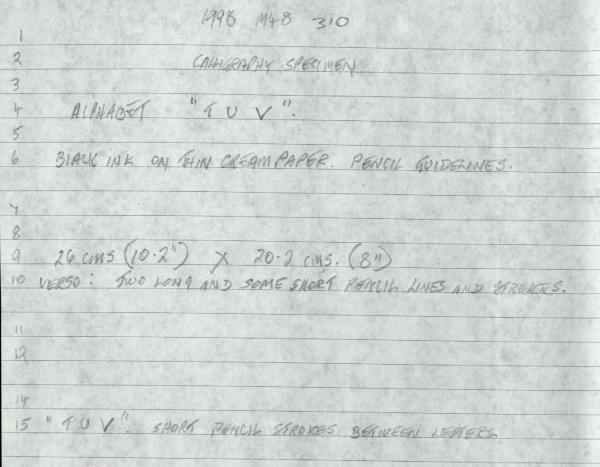 1998 M48 310
1
2 CALLIGRAPHY SPECIMEN
3
4 ALPHABET "T U V".
5
6 BLACK INK ON THIN CREAM PAPER. PENCIL GUIDELINES.
7
8
9 26 cms (10.2") X 20.2 cms. (8")
10 VERSO: TWO LONG AND SOME SHORT PENCIL LINES AND STROKES.
11
12
14
15 "T U V". SHORT PENCIL STROKES BETWEEN LETTERS